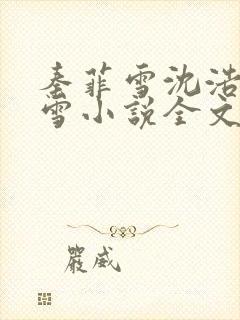 秦菲雪沈浩
雪小説全文
嚴威